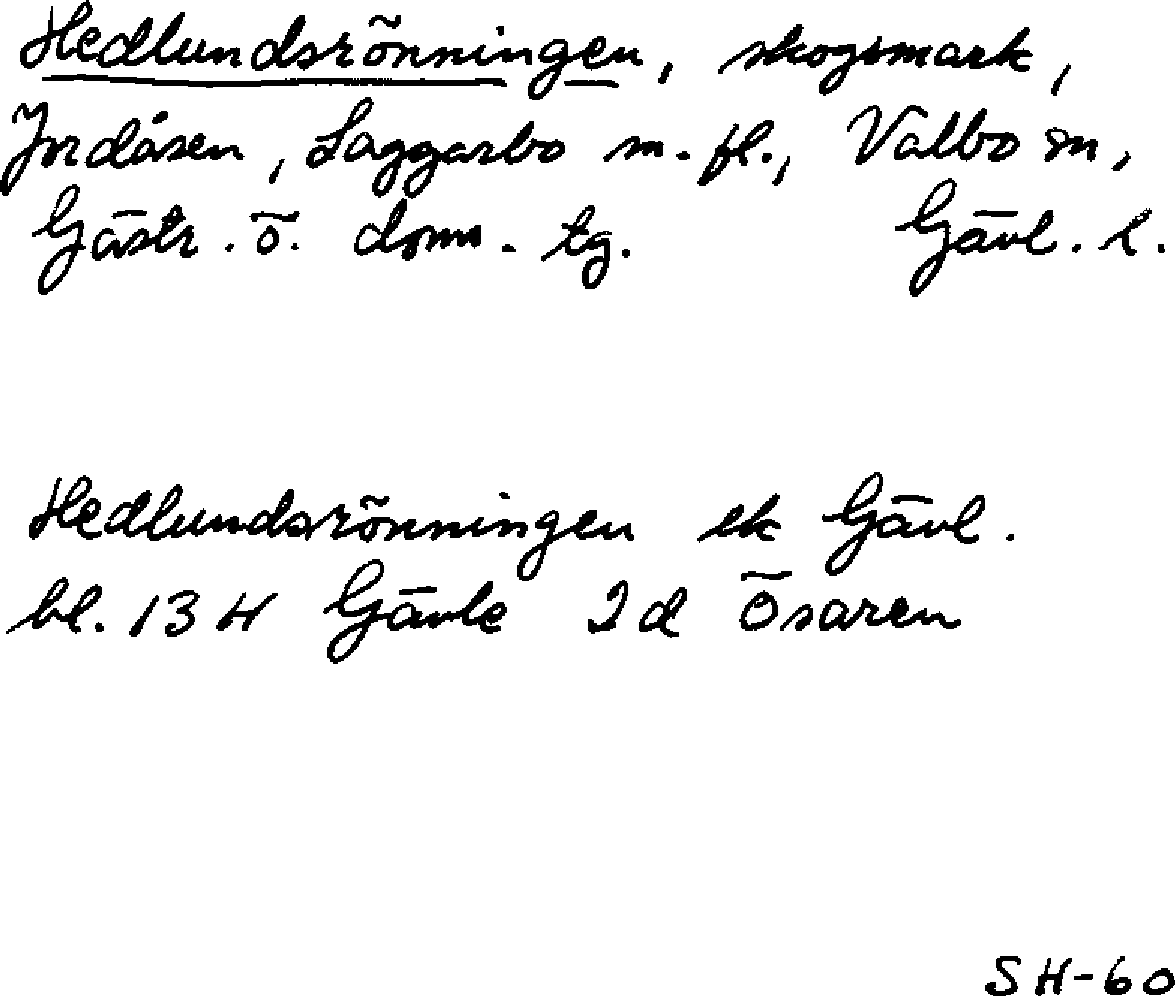 Hedlundsrönningen, skogsmark,
Jordåsen, Laggarbo m. fl., Valbo sn,
Gästr. ö. doms. tg. Gävl. l.
Hedlundsrönningen ek Gävl.
bl. 13 H Gävle 2d Ösaren
SH-60